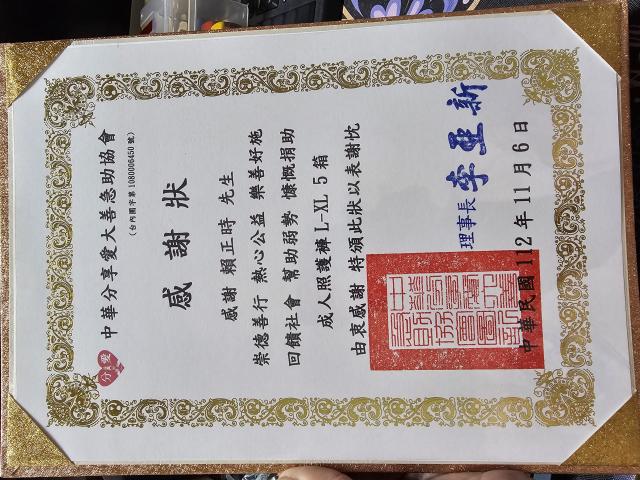 分愛
中華分享愛大善急助協會
(台內團字第 1080006450 號)
感謝狀
感謝 賴正時 先生
崇德善行 熱心公益 樂善好施
回饋社會 幫助弱勢 慷慨捐助
成人照護褲 L-XL 5 箱
由衷感謝 特頒此狀以表謝忱
理事長 李亞新
中華民國 112 年 11 月 6 日